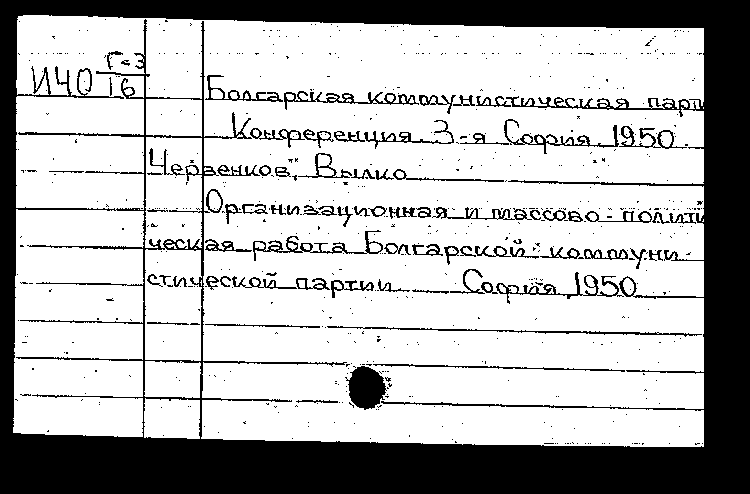 Г-3
И40 16
Болгарская коммунистическая парт
Конференция 3-я София 1950
Червенков, Вылко
Организационная и массово-полити
ческая работа Болгарской коммуни-
стической партии София 1950